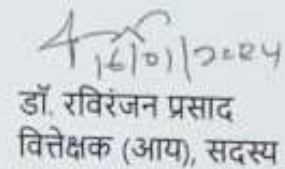 16/01/2024
डॉ. रविरंजन प्रसाद
वित्तेक्षक (आय), सदस्य